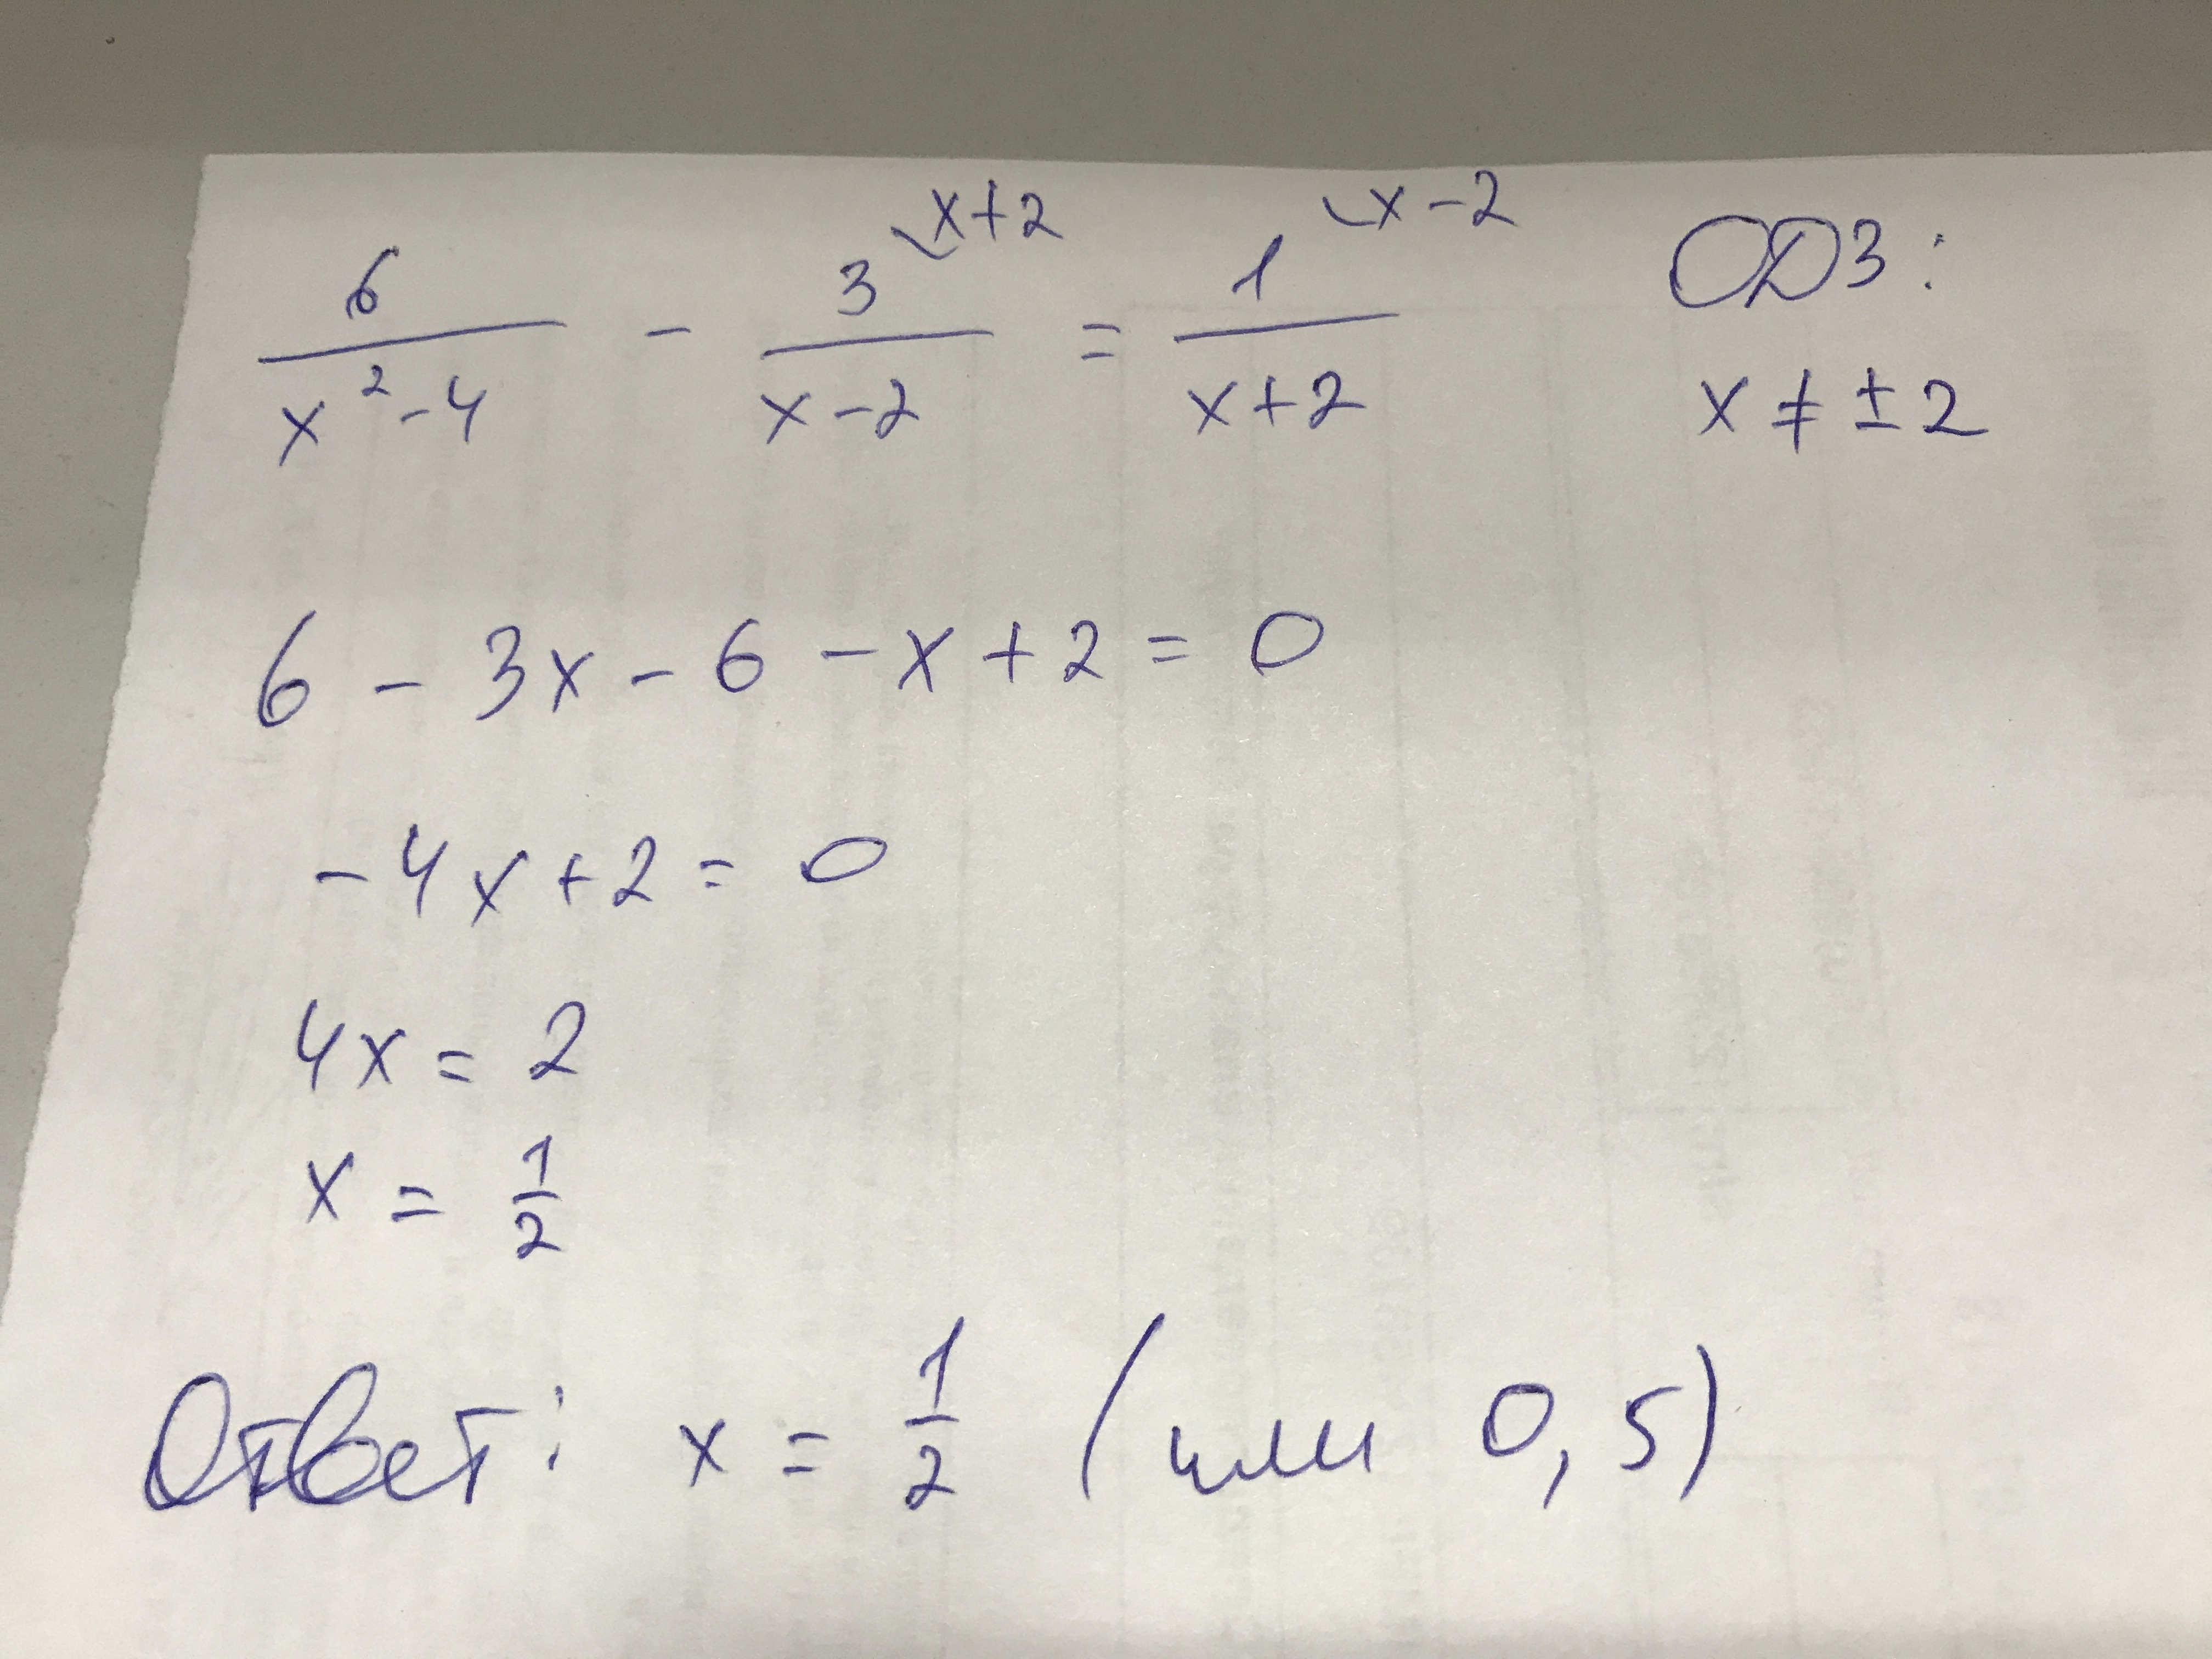 6/(x²-4) - 3/(x-2) ⌣x+2 = 1/(x+2) ⌣x-2 ОДЗ:
x ≠ ±2
6 - 3x - 6 - x + 2 = 0
-4x + 2 = 0
4x = 2
x = 1/2
Ответ: x = 1/2 (или 0,5)